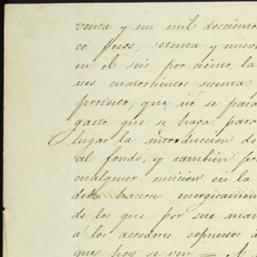 venta y un mil doscientos
co pesos, setenta y nueve
en el seis por ciento, la
nes cuatrocientos
proximo, que no se
gasto que se haga para
lugar la introduccion de
tal fondo, y tambien por
cualquier omision en la
debe hacerse energicamen
de los que por sus
a los acreedores expuestos a
que hoy se ven = A